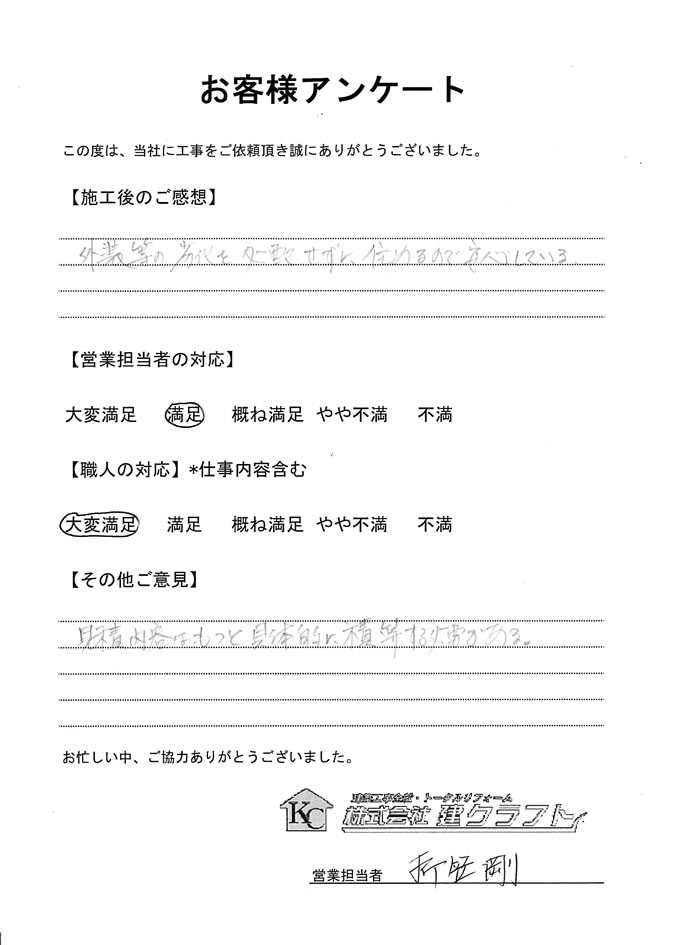 お客様アンケート
この度は、当社に工事をご依頼頂き誠にありがとうございました。
【施工後のご感想】
外装等の劣化を心配せずに住めるので安心している
【営業担当者の対応】
大変満足 満足 概ね満足 やや不満 不満
【職人の対応】*仕事内容含む
大変満足 満足 概ね満足 やや不満 不満
【その他ご意見】
見積内容はもっと具体的に積算する必要がある。
お忙しい中、ご協力ありがとうございました。
KC
建築工事全般・トータルリフォーム
株式会社 建クラフト
営業担当者 剛